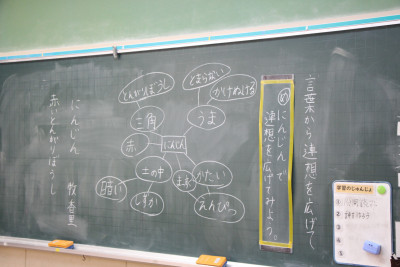 言葉から連想を広げて
め
にんじんで
連想を広げてみよう。
とまらない
かけぬける
とんがりぼうし
三角
うま
赤
にんじん
土の中
かたい
暗い
しずか
えんぴつ
にんじん 牧 香里
赤いとんがりぼうし
学習のじゅんじょ